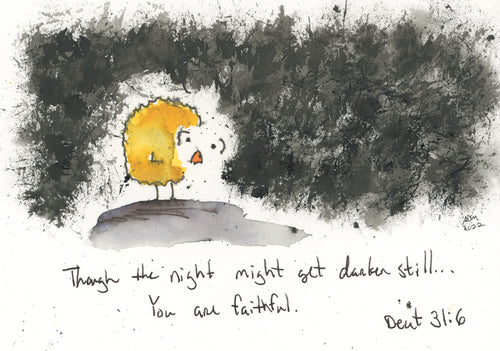 2022
Though the night might get darker still...
You are faithful.
Deut 31:6